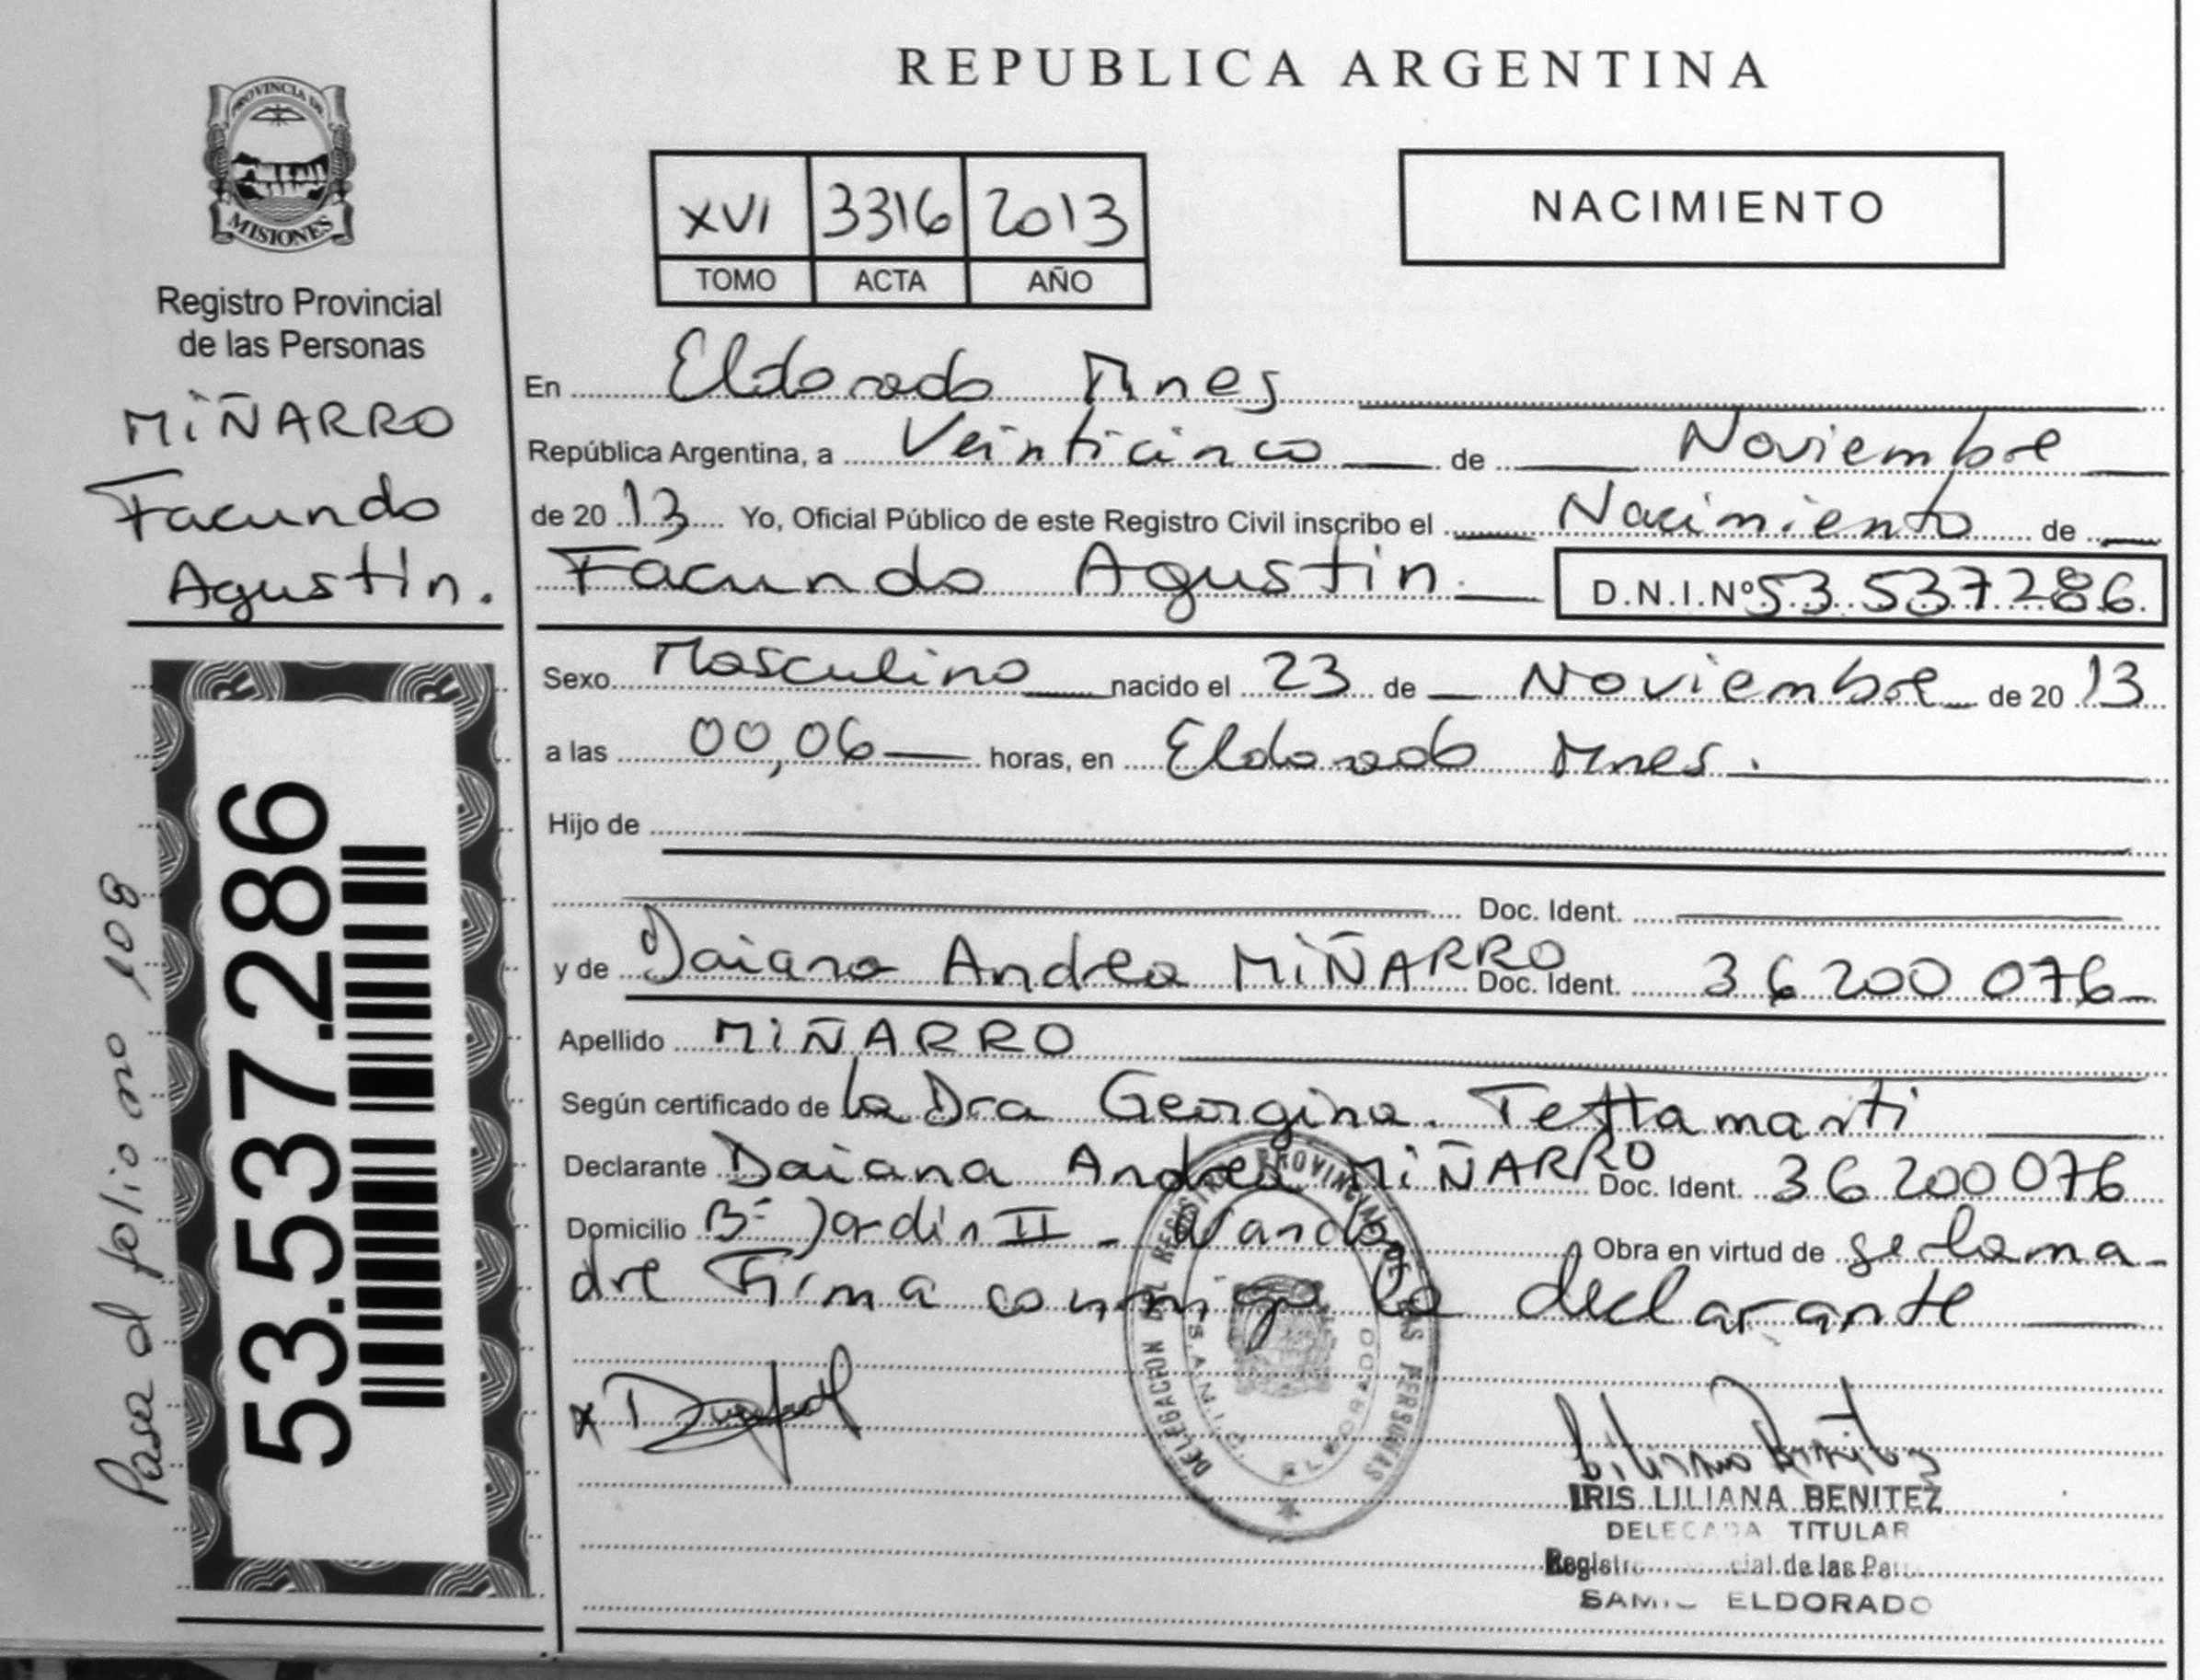 REPUBLICA ARGENTINA
PROVINCIA DE
MISIONES
Registro Provincial
de las Personas
MIÑARRO
Facundo
Agustin.
53.537.286
Pasa al folio no 108
XVI 3316 2013
TOMO ACTA AÑO
NACIMIENTO
En Eldorado Mnes
República Argentina, a Veinticinco de Noviembre
de 2013 Yo, Oficial Público de este Registro Civil inscribo el Nacimiento de
Facundo Agustin. D.N.I.Nº 53.537.286
Sexo Masculino nacido el 23 de Noviembre de 2013
a las 00,06 horas, en Eldorado Mnes.
Hijo de
Doc. Ident.
y de Daiana Andrea MIÑARRO Doc. Ident. 36 200 076
Apellido MIÑARRO
Según certificado de la Dra Georgina. Tettamanti
Declarante Daiana Andrea MIÑARRO Doc. Ident. 36 200 076
Domicilio Bº Jardin II - Wanda Obra en virtud de se la ma-
dre Firma conmigo la declarante
DELEGACION DEL REGISTRO PROVINCIAL DE LAS PERSONAS
ELDORADO
IRIS LILIANA BENITEZ
DELEGADA TITULAR
de las
ELDORADO